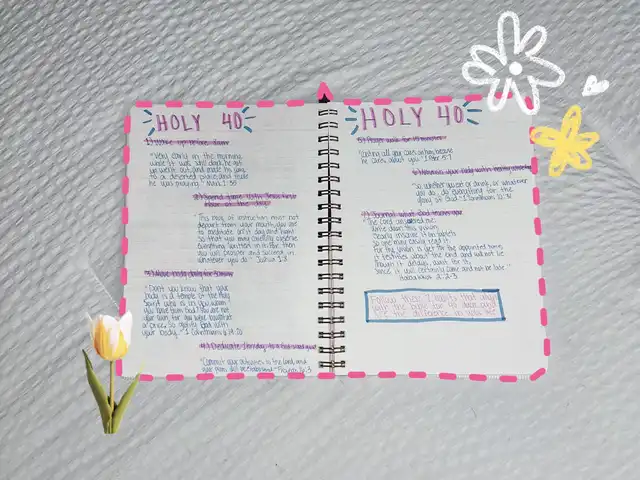 HOLY 40
1.) Wake up before dawn
"Very early in the morning
while it was still dark, he got
up, went out, and made his way
to a deserted place, and there
he was praying." Mark 1:35
2.) Spend time with Jesus
"This book of instruction must not
depart from your mouth; you are
to meditate on it day and night
so that you may carefully observe
everything written in it. For then
you will prosper and succeed in
whatever you do." Joshua 1:8
3.) Move body daily for
"Don't you know that your
body is a temple of the Holy
Spirit who is in you, whom
you have from God? You are not
your own, for you were bought
at a price. So glorify God with
your body." 1 Corinthians 6:19-20
4.) Dedicate
"Commit your activities to the Lord, and
your plans will be established." Proverbs 16:3
HOLY 40
5.) Prayer walk for 15 minutes
"Casting all your cares on him, because
he cares about you." 1 Peter 5:7
6.) Nourish your body with
"So, whether you eat or drink, or whatever
you do, do everything for the
glory of God." 1 Corinthians 10:31
7.) Journal what God
"The Lord answered me:
Write down this vision;
clearly inscribe it on tablets
so one may easily read it.
For the vision is yet for the appointed time;
it testifies about the end and will not lie.
Though it delays, wait for it,
since it will certainly come and not be late."
Habakkuk 2:2-3
Follow these 7 habits that
for 40 days
difference in your life